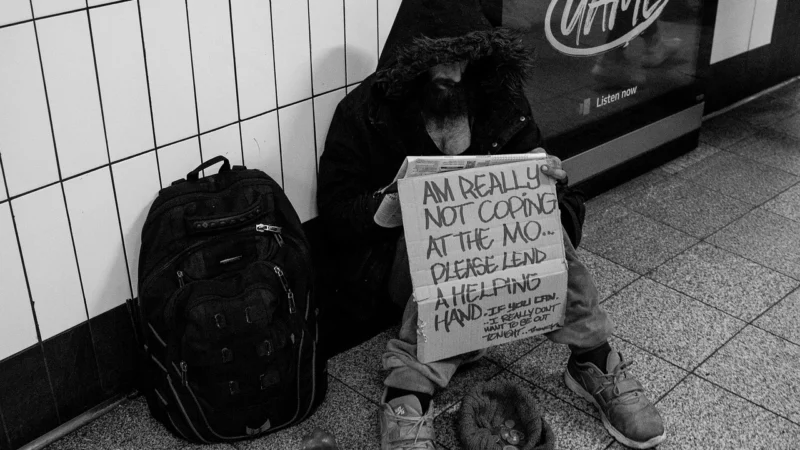 GAME
Listen now
AM REALLY
NOT COPING
AT THE MO..
PLEASE LEND
A HELPING
HAND. IF YOU CAN.
..I REALLY DON'T
WANT TO BE OUT
TONIGHT...